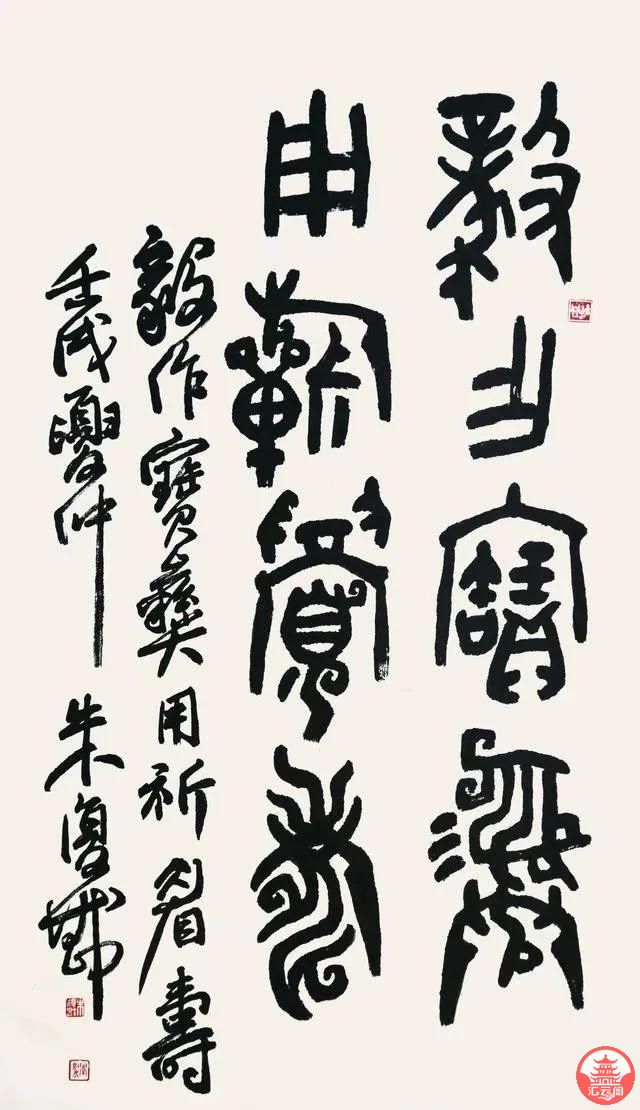 毅乍寶彝
用祈眉壽
毅作寶彝用祈眉壽
壬戌夏仲 朱復戡
汇云阁